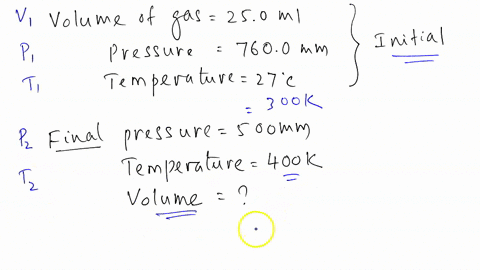 V₁ Volume of gas = 25.0 ml
P₁ Pressure = 760.0 mm
T₁ Temperature = 27°c
= 300K
Initial
P₂ Final pressure = 500mm
T₂ Temperature = 400K
Volume = ?